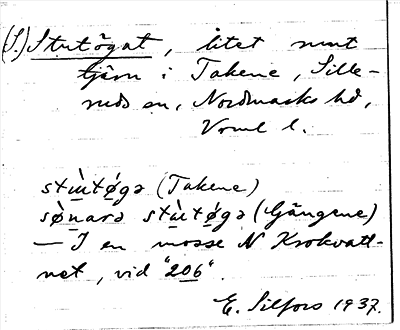 (S.) Stutögat, litet runt
tjärn i Takene, Sille-
ruds sn, Nordmarks hd,
Vrml l.
stɯ̀tø̜gə (Takene)
sø̀narə stɯ̀tø̜gə (Gängene)
— I en mosse N Krokvatt-
net, vid "206".
E. Silfors 1937.